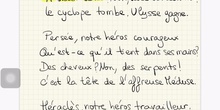 le cyclope tombe, Ulysse gagne.
Persée, notre héros courageux
Qu'est-ce qu'il tient dans ses mains?
Des cheveux? Non, des serpents!
C'est la tête de l'affreuse Méduse.
Héraclès notre héros travailleur.